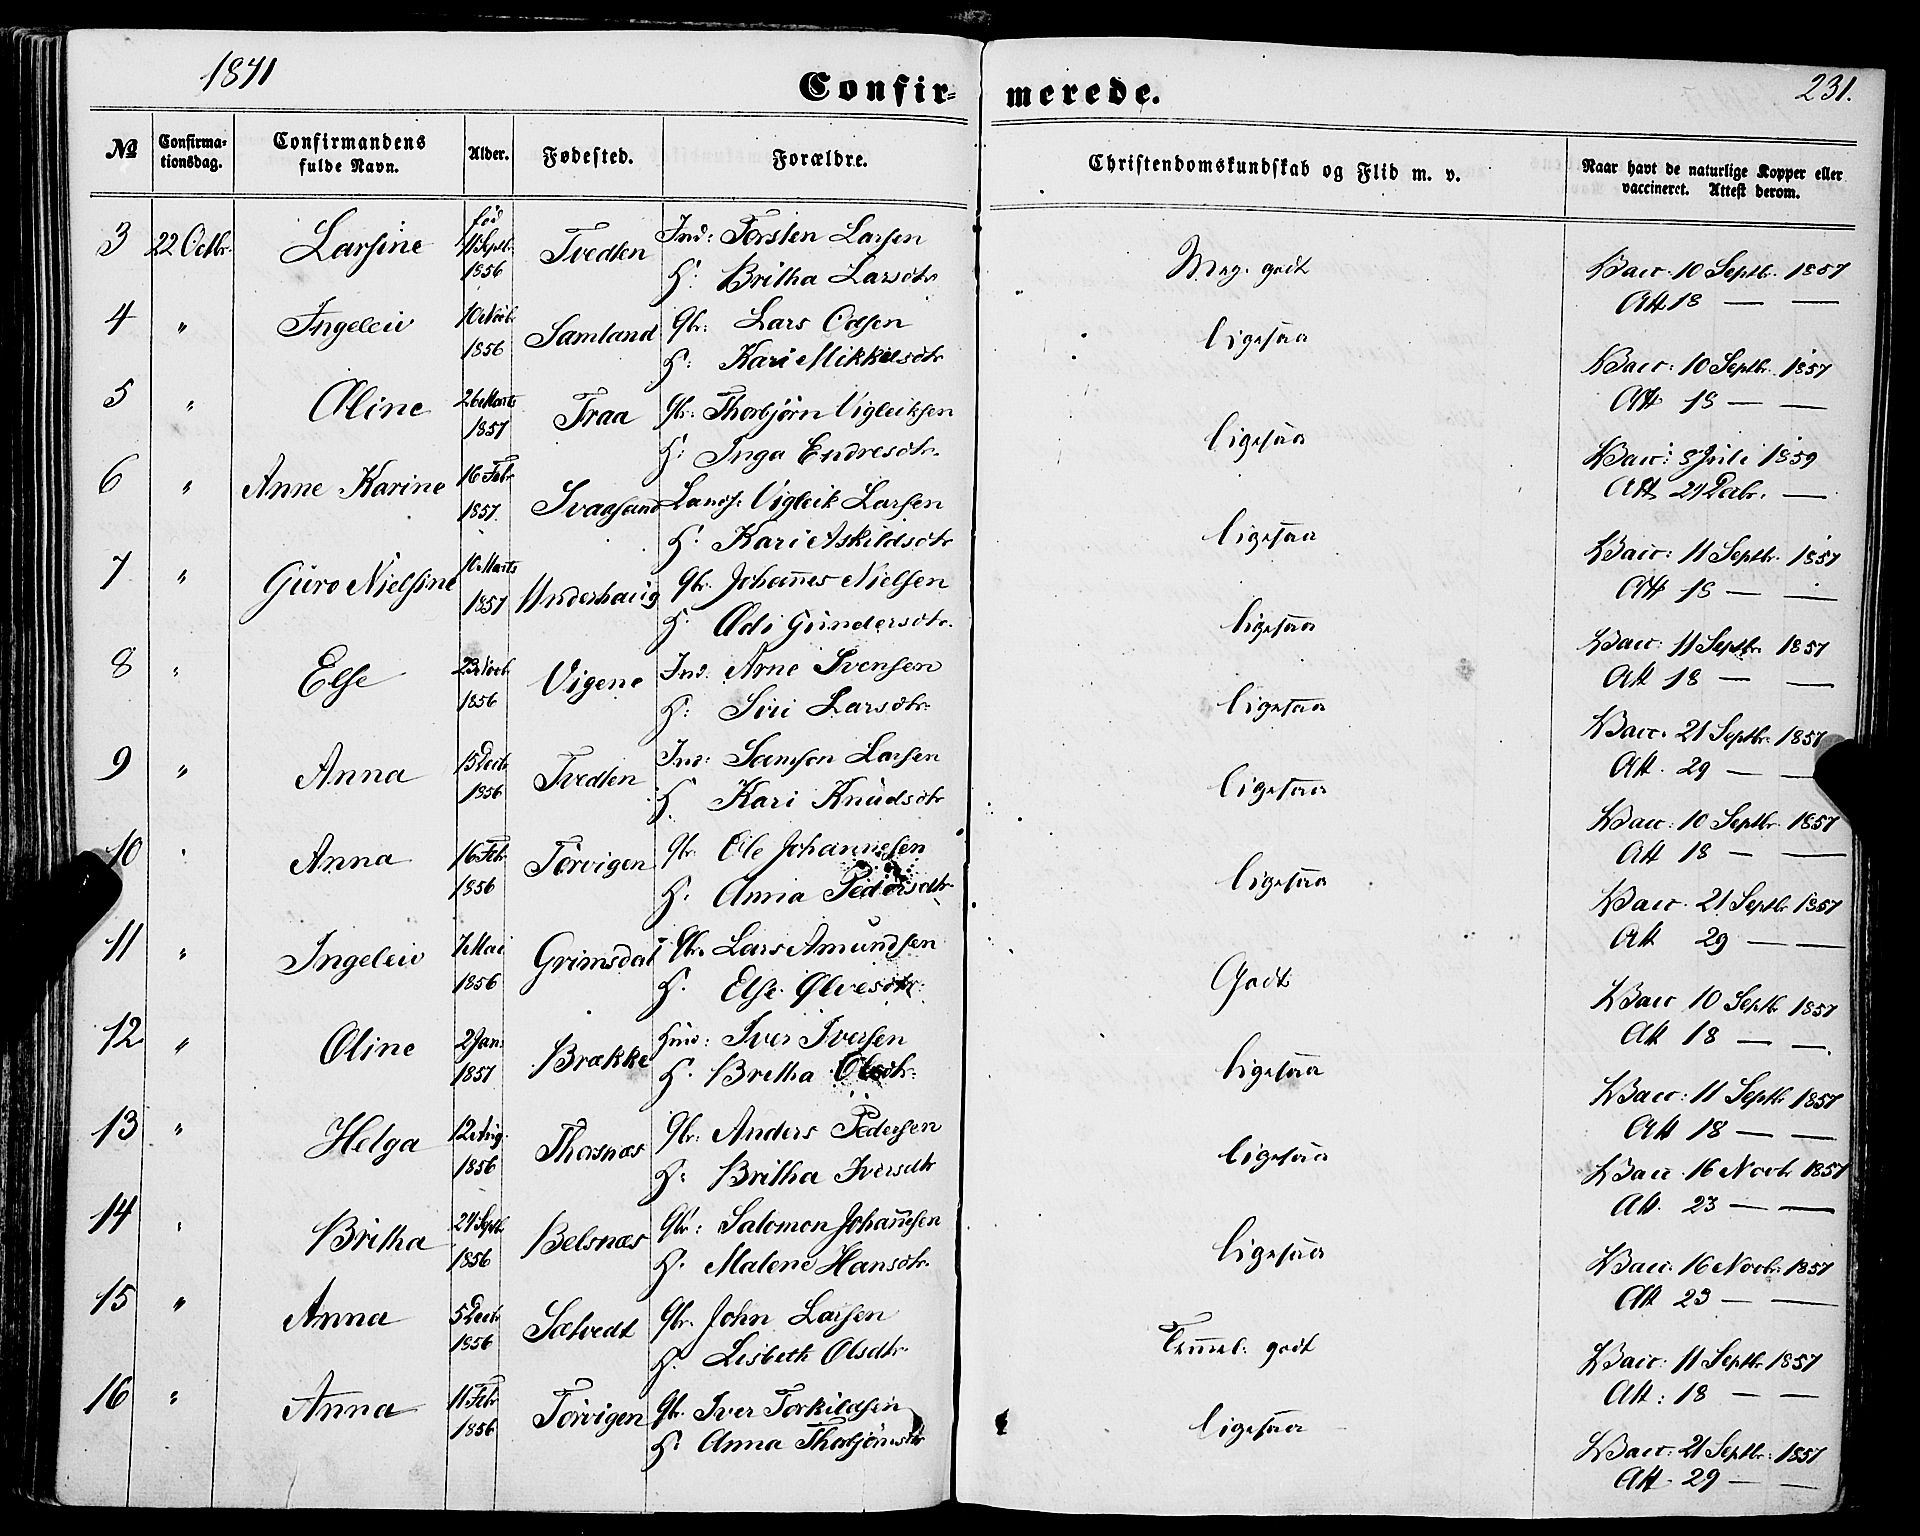 1871
Confir= merede.
231.
№ Confirma= tionsdag. Confirmandens fulde Navn. Alder. Fødested. Forældre. Christendomskundskab og Flid m. v. Naar havt de naturlige Kopper eller vaccineret. Attest derom.
3 22 Octbr. Larsine fød Septbr. 1856 Tvedten Ind: Torsten Larsen Meg. godt Vacc. 10 Septbr. 1857
H: Britha Larsdtr Att 18 — —
4 " Ingeleiv 10 Novbr 1856 Samland Gbr: Lars Odsen ligesaa Vacc: 10 Septbr. 1857
H: Kari Mikkelsdtr Att 18 — —
5 " Oline 26 Marts 1857 Traa Gbr: Thorbjørn Vigleiksen ligesaa Vacc: 8 Juli 1859
H: Inga Endresdtr. Att 21 Decbr. —
6 " Anne Karine 16 Febr 1857. Svaasand Landh: Vigleik Larsen ligesaa Vacc: 11 Septbr. 1857
H. Kari Askildsdtr Att 18 — —
7 " Guro Nielsine 10 Marts 1857 Underhaug Gbr. Johannes Nielsen ligesaa Vacc: 11 Septbr. 1857
H. Odi Gundersdtr. Att 18 — —
8 " Else 23 Novbr. 1856 Vigene Ind. Arne Svensen ligesaa Vacc. 21 Septbr. 1857
H: Siri Larsdtr. Att. 29 — —
9 " Anna Decbr 1856 Tvedten Ind: Samson Larsen ligesaa Vacc: 10 Septbr. 1857
H. Kari Knudsdtr Att 18 — —
10 " Anna 16 Febr 1856 Torvigen Gbr. Ole Johannesen ligesaa Vacc. 21 Septbr 1857
H. Anna Pedersdtr Att 29 — —
11 " Ingeleiv 7 Mai 1856 Grimsdal Gbr. Lars Amundsen Godt Vacc 10 Septbr 1857
H. Else Ølvesdtr. Att 18 — —.
12 " Oline 2 Jan: 1857 Brække Huus: Iver Iversen ligesaa Vacc: 11 Septbr 1857
H. Britha Olsdtr. Att 18 — —
13 " Helga 12 Aug. 1856 Thorsnæs Gbr: Anders Pedersen ligesaa Vacc. 16 Novbr. 1857
H: Britha Iversdtr Att. 23 — —
14 " Britha Septbr 1856 Belsnæs Gbr: Salomon Johannesen ligesaa Vacc. 16 Novbr. 1857
H. Malene Hansdtr. Att 23 — —
15 " Anna 5 Decbr 1856 Sætvedt Gbr. John Larsen Temmel: godt Vacc: 11 Septbr 1857
H. Lisbeth Olsdtr. Att: 18 — —
16 " Anna 11 Febr 1856 Torvigen Gbr. Iver Torkildsen ligesaa Vacc: 21 Septbr: 1857
H: Anna Thorbjørnsdtr Att. 29 — —